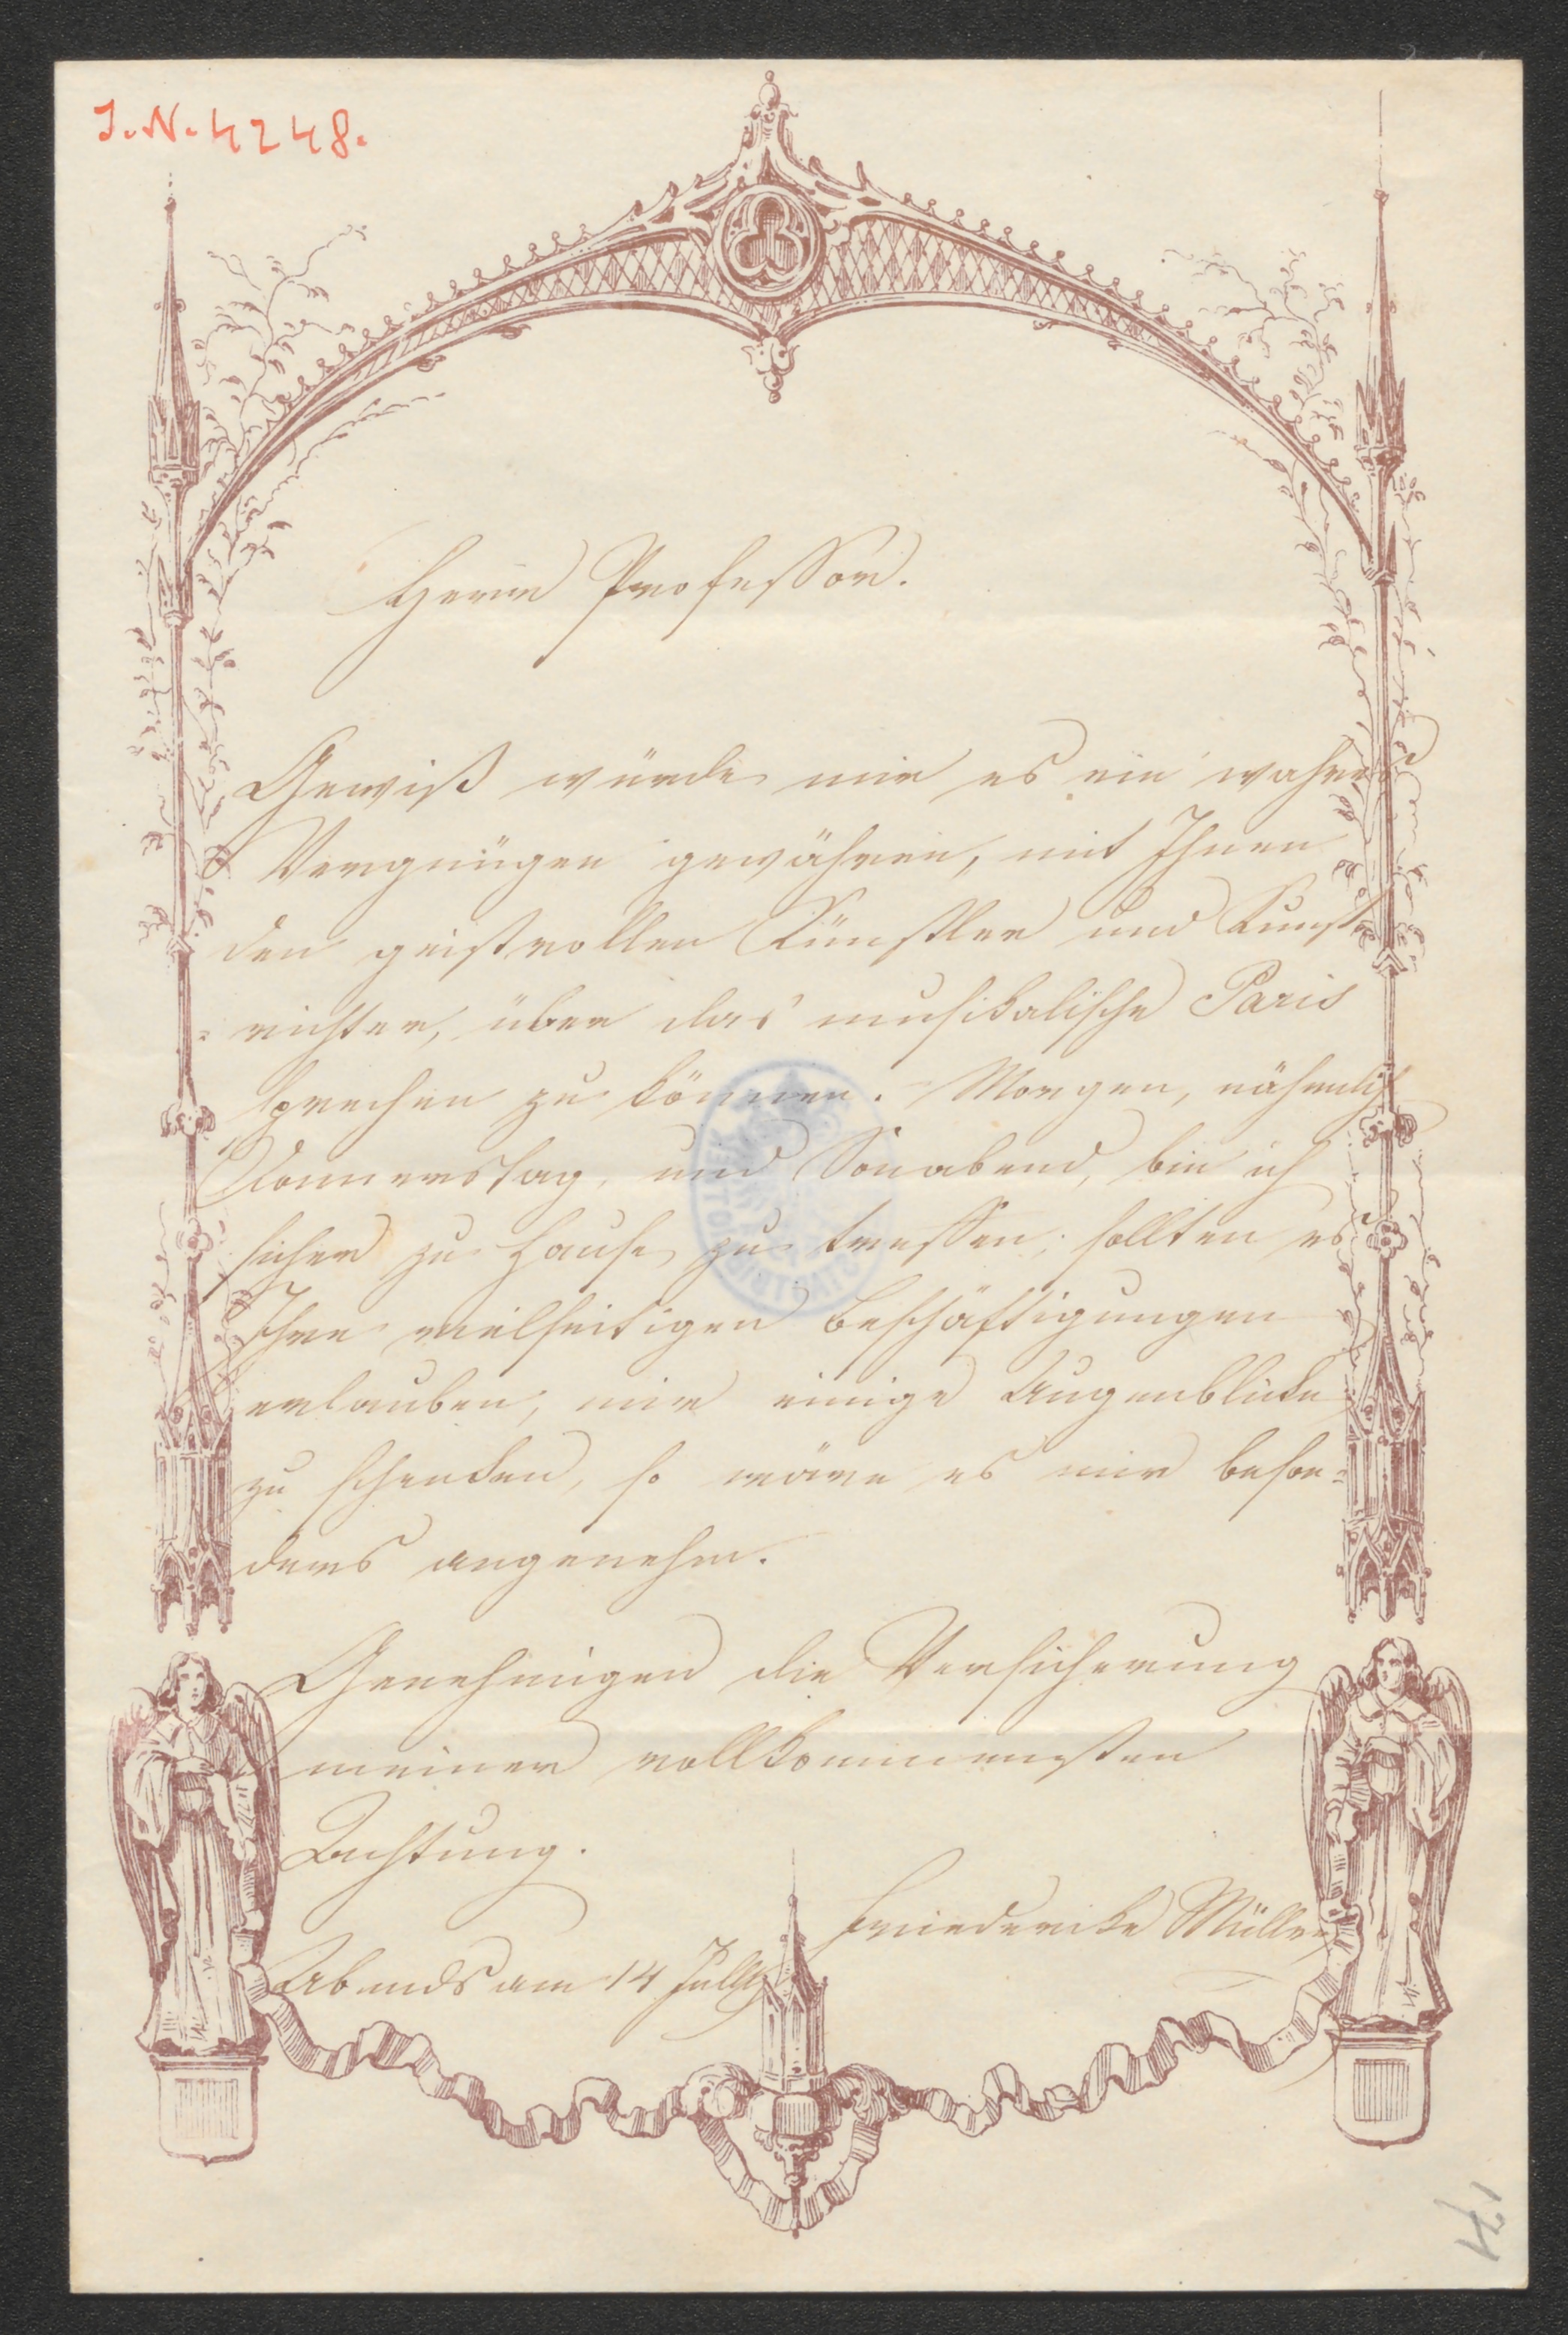 J. N. 4248.
Herrn Professor.
Gewiß würde mir es ein wahres
Vergnügen gewähren, mit Ihnen
den geistvollen Künstler und Kunst-
richter, über das musikalische Paris
sprechen zu können. – Morgen, nähmlich
Donnerstag, und Sonabend, bin ich
sicher zu Hause zu treffen; sollten es
Ihre vielseitigen Beschäftigungen
erlauben, mir einige Augenblicke
zu schenken, so wäre es mir beson-
ders angenehm.
Genehmigen die Versicherung
meiner vollkommensten
Achtung.
Friederike Müller
Abends am 14 July